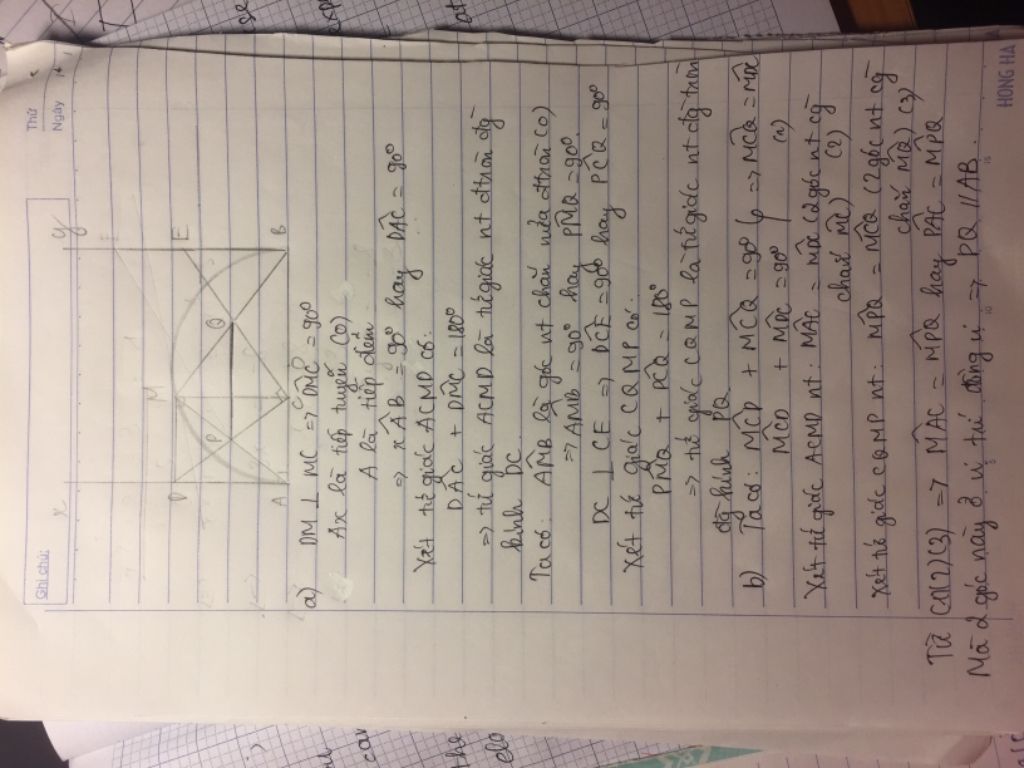 Thứ
Ngày
Ghi chú:
x
y
D
M
E
P
Q
A
C
B
a) DM ⊥ MC => DM̂C = 90°
Ax là tiếp tuyến (O)
A là tiếp điểm
=> xÂB = 90° hay DÂC = 90°
Xét tứ giác ACMD có:
DÂC + DM̂C = 180°
=> tứ giác ACMD là tứ giác nt đtròn đg
kính DC
Ta có: AM̂B là góc nt chắn nửa đtròn (O)
=> AM̂B = 90° hay PM̂Q = 90°
DC ⊥ CE => DĈE = 90° hay PĈQ = 90°
Xét tứ giác CQMP có:
PM̂Q + PĈQ = 180°
=> tứ giác CQMP là tứ giác nt đg tròn
đg kính PQ
b) Ta có: MĈP + MĈQ = 90° } => MĈQ =
MĈD + = 90° (1)
Xét tứ giác ACMP nt: MÂC = (2 góc nt cg
chắn MC) (2)
Xét tứ giác CQMP nt: MP̂Q = MĈQ (2 góc nt cg
chắn MQ) (3)
Từ (1)(2)(3) => MÂC = MP̂Q hay PÂC = MP̂Q
Mà 2 góc này ở vị trí đồng vị => PQ // AB.
HONG HA